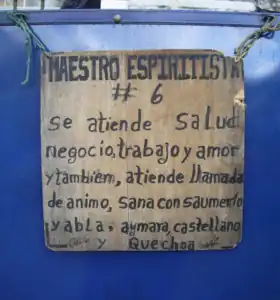 MAESTRO ESPIRITISTA
# 6
se atiende Salud
negocio, trabajo y amor
y tambiem, atiende llamada
de animo, sana con saumerio
y abla, aymara, castellano
y Quechoa